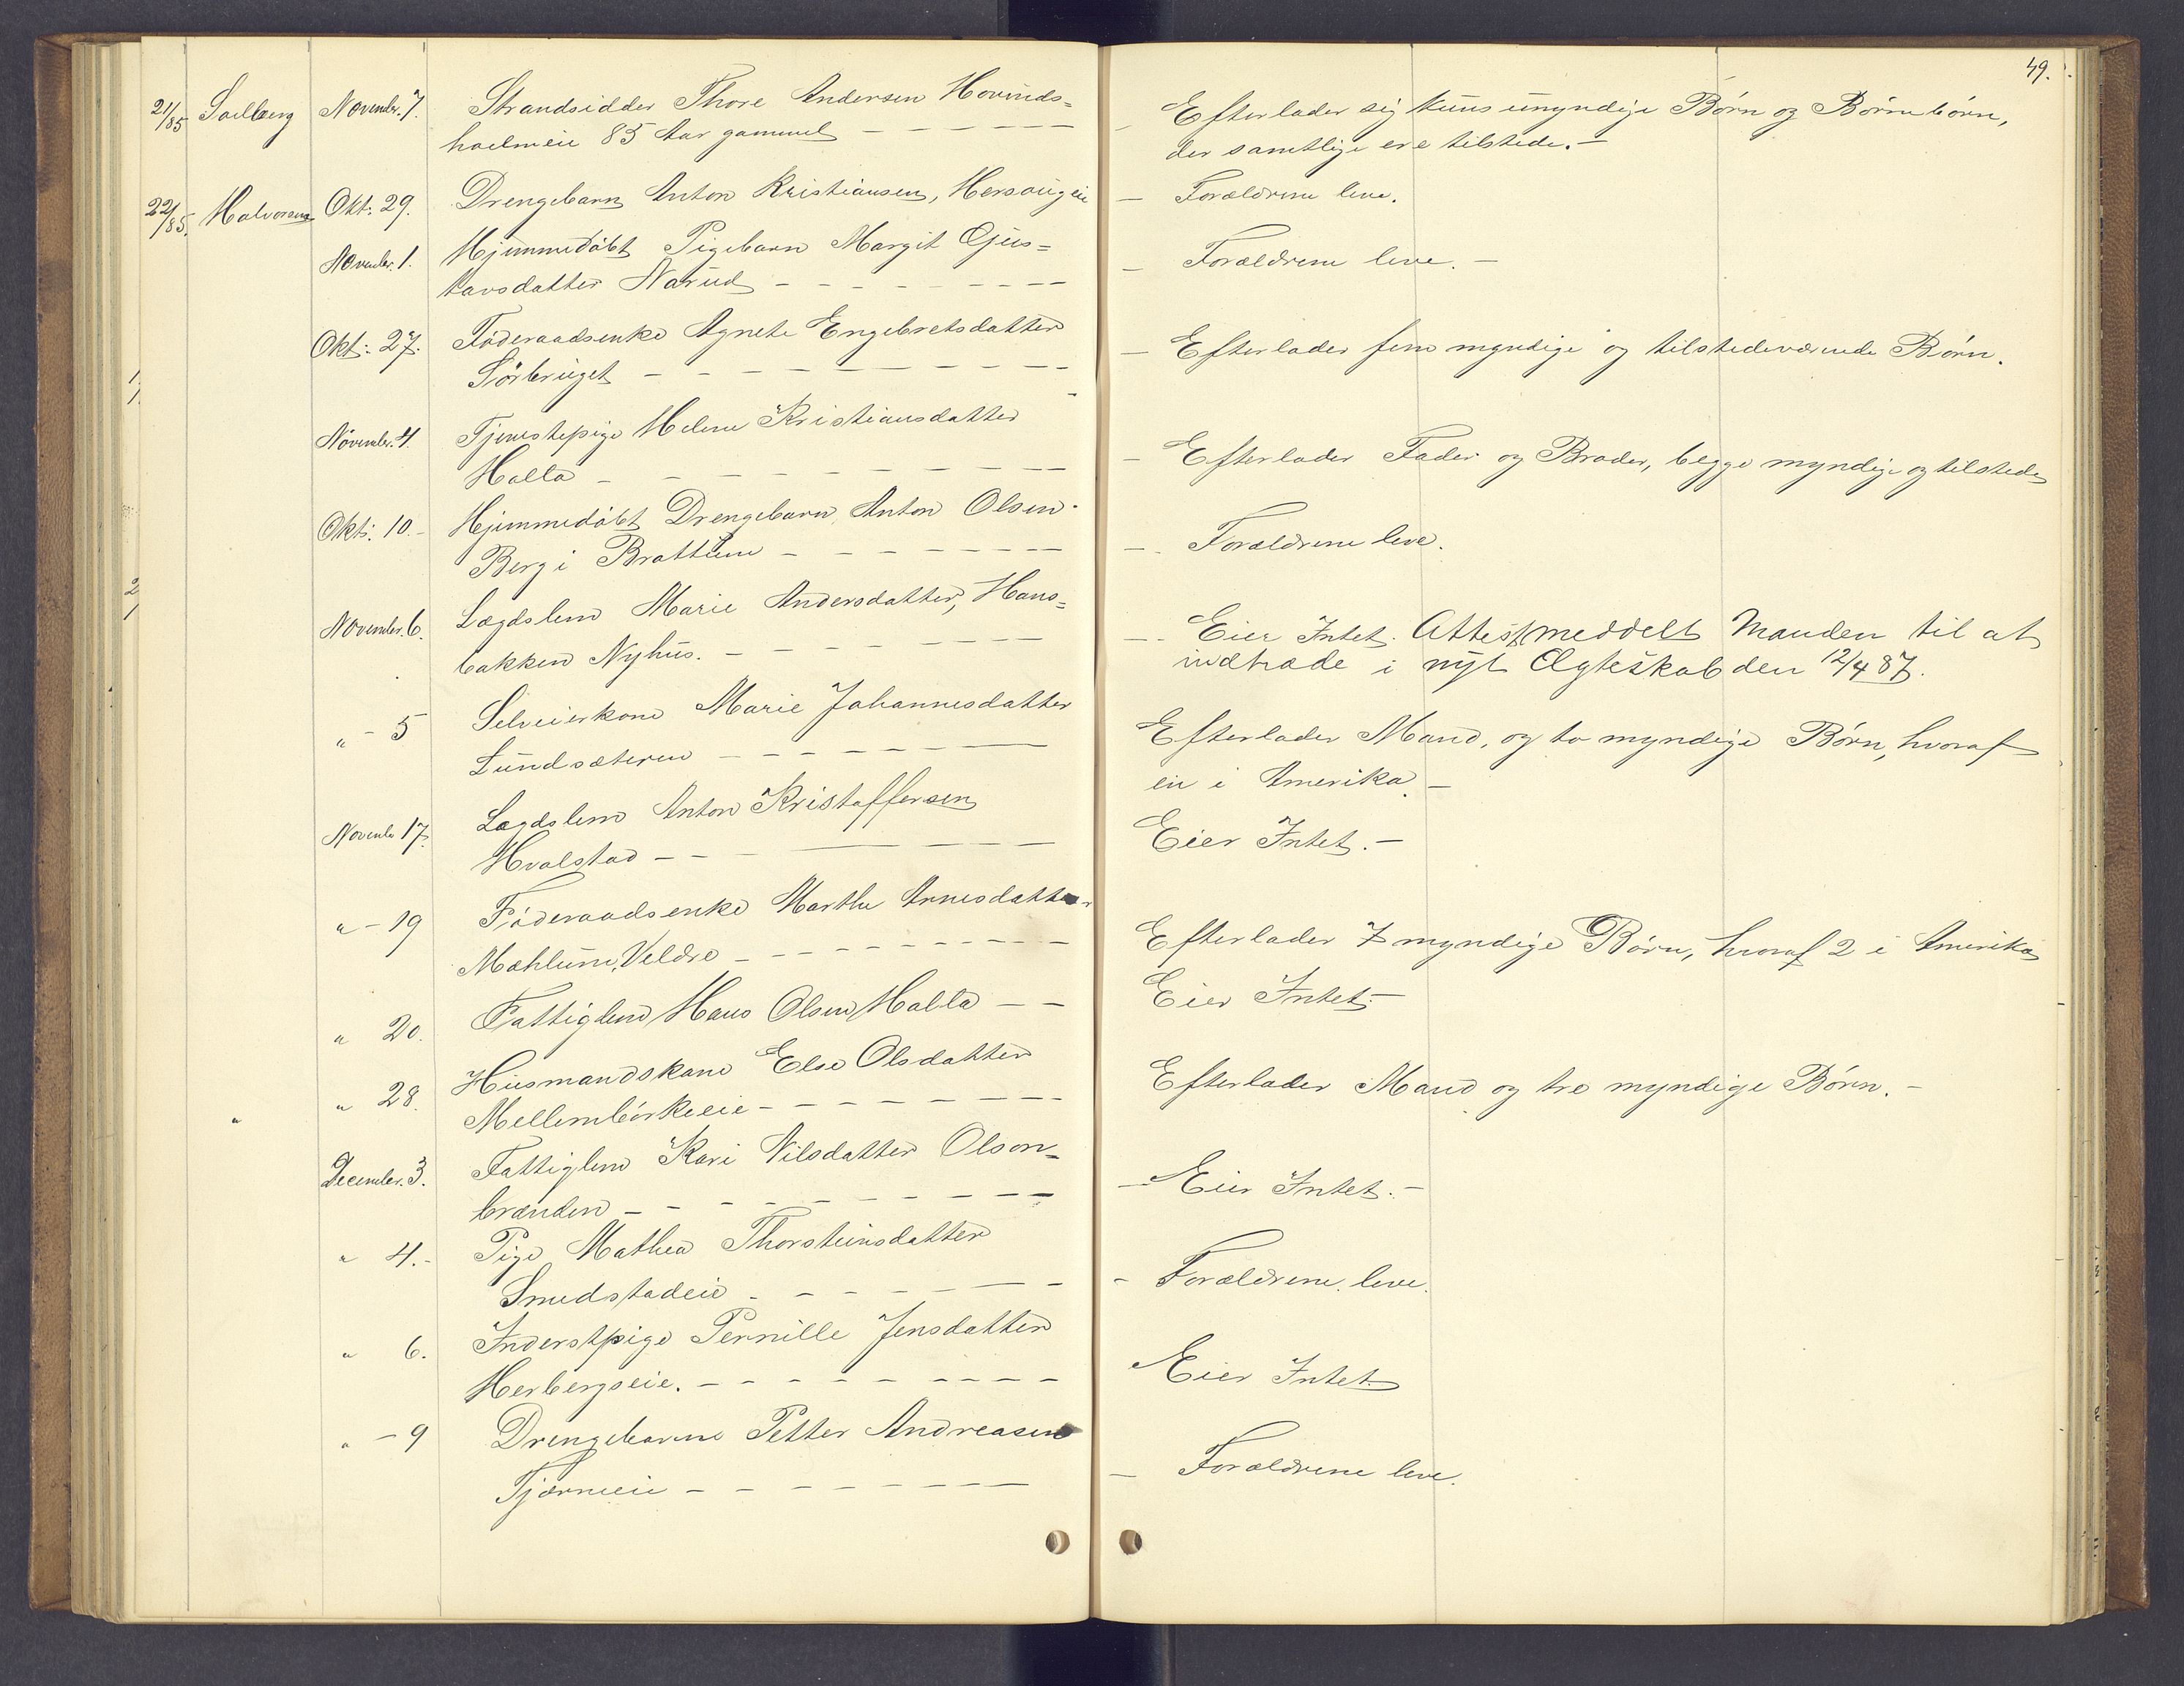 49.
21/85 Solberg Novembr. 7. Strandsidder Thore Andersen Hovinds=
holmeie 85 Aar gammel - - - - - -
Efterlader sig kuns umyndige Børn og Børnebørn,
der samtlige ere tilstede. -
22/85. Halvorsen Okt: 29. Drengebarn Anton Kristiansen, Hersougeie
- Forældrene leve.
Novembr. 1. Hjemmedøbt Pigebarn Margit Gjus=
tavsdatter Narud - - - - - - - -
- Forældrene leve. -
Okt: 27. Føderaadsenke Agnete Engebretsdatter
Sörbruget - - - - - - - - - -
- Efterlader fem myndige og tilstedeværende Børn.
Novembr. 4. Tjenestepige Helene Kristiansdatter
Halla - - - - - - - - -
- Efterlader Fader og Broder, begge myndige og tilstede
Okt: 10. - Hjemmedøbt Drengebarn Anton Olsen
Berg i Brøttum - - - - - - - -
- Forældrene leve.
Novembr. 6. Lægdslem Marie Andersdatter, Hans=
bakken Nyhus. - - - - - - -
- Eier Intet. Attest meddelt Manden til at
indtræde i nyt Ægteskab den 12/4 87.
" - 5 Selveierkone Marie Johannesdatter
Lundsæteren - - - - - - -
Efterlader Mand, og to myndige Børn, hvoraf
en i Amerika. -
Novembr 17. Lægdslem Anton Kristoffersen
Hvalstad - - - - - -
Eier Intet. -
" - 19 Føderaadsenke Marthe Arnesdatter
Mæhlum, Veldre - - - - - - - - -
Efterlader 7 myndige Børn, hvoraf 2 i Amerika
" 20. Fattiglem Hans Olsen Halla - -
Eier Intet. -
" 28. Husmandskone Else Olsdatter
Mellembørkeeie - - - - - - - -
Efterlader Mand og tre myndige Børn. -
December. 3. Fattiglem Kari Nilsdatter Olson-
brænden - - - - - - - - -
- Eier Intet. -
" 4. - Pige Mathea Thorsteinsdatter
Smedstadeie - - - - - - -
- Forældrene leve.
" 6. Inderstpige Pernille Jensdatter
Herbergseie. - - - - - - - - -
Eier Intet
" - 9 Drengebarne Petter Andreasen
Tjærneeie - - - - - - - -
- Forældrene leve.